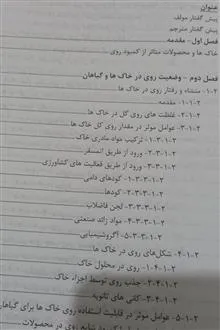 عنوان
پیش گفتار مولف
پیش گفتار مترجم
فصل اول- مقدمه
خاک ها و محصولات متاثر از کمبود روی
فصل دوم – وضعیت روی در خاک ها و گیاهان
۲-۱- منشاء و رفتار روی در خاک ها
۲-۱-۱- مقدمه
۲-۱-۲- غلظت های روی کل در خاک ها
۲-۱-۳- عوامل موثر در مقدار روی کل خاک ها
۲-۱-۳-۱- ترکیب مواد مادری خاک
۲-۱-۳-۲- ورود از طریق اتمسفر
۲-۱-۳-۳- ورود از طریق فعالیت های کشاورزی
۲-۱-۳-۳-۱- کودهای دامی
۲-۱-۳-۳-۲- کودها
۲-۱-۳-۳-۳- لجن فاضلاب
۲-۱-۳-۳-۴- مواد زائد صنعتی
۲-۱-۳-۳-۵- آگروشیمیایی
۲-۱-۴- شکل‌های روی در خاک ها
۲-۱-۴-۱- روی در محلول خاک
۲-۱-۴-۲- جذب روی توسط اجزاء خاک
۲-۱-۴-۳- کانی های ثانویه
۲-۱-۵- عوامل موثر در قابلیت استفاده روی خاک ها برای گیاهان
روی در محصولات